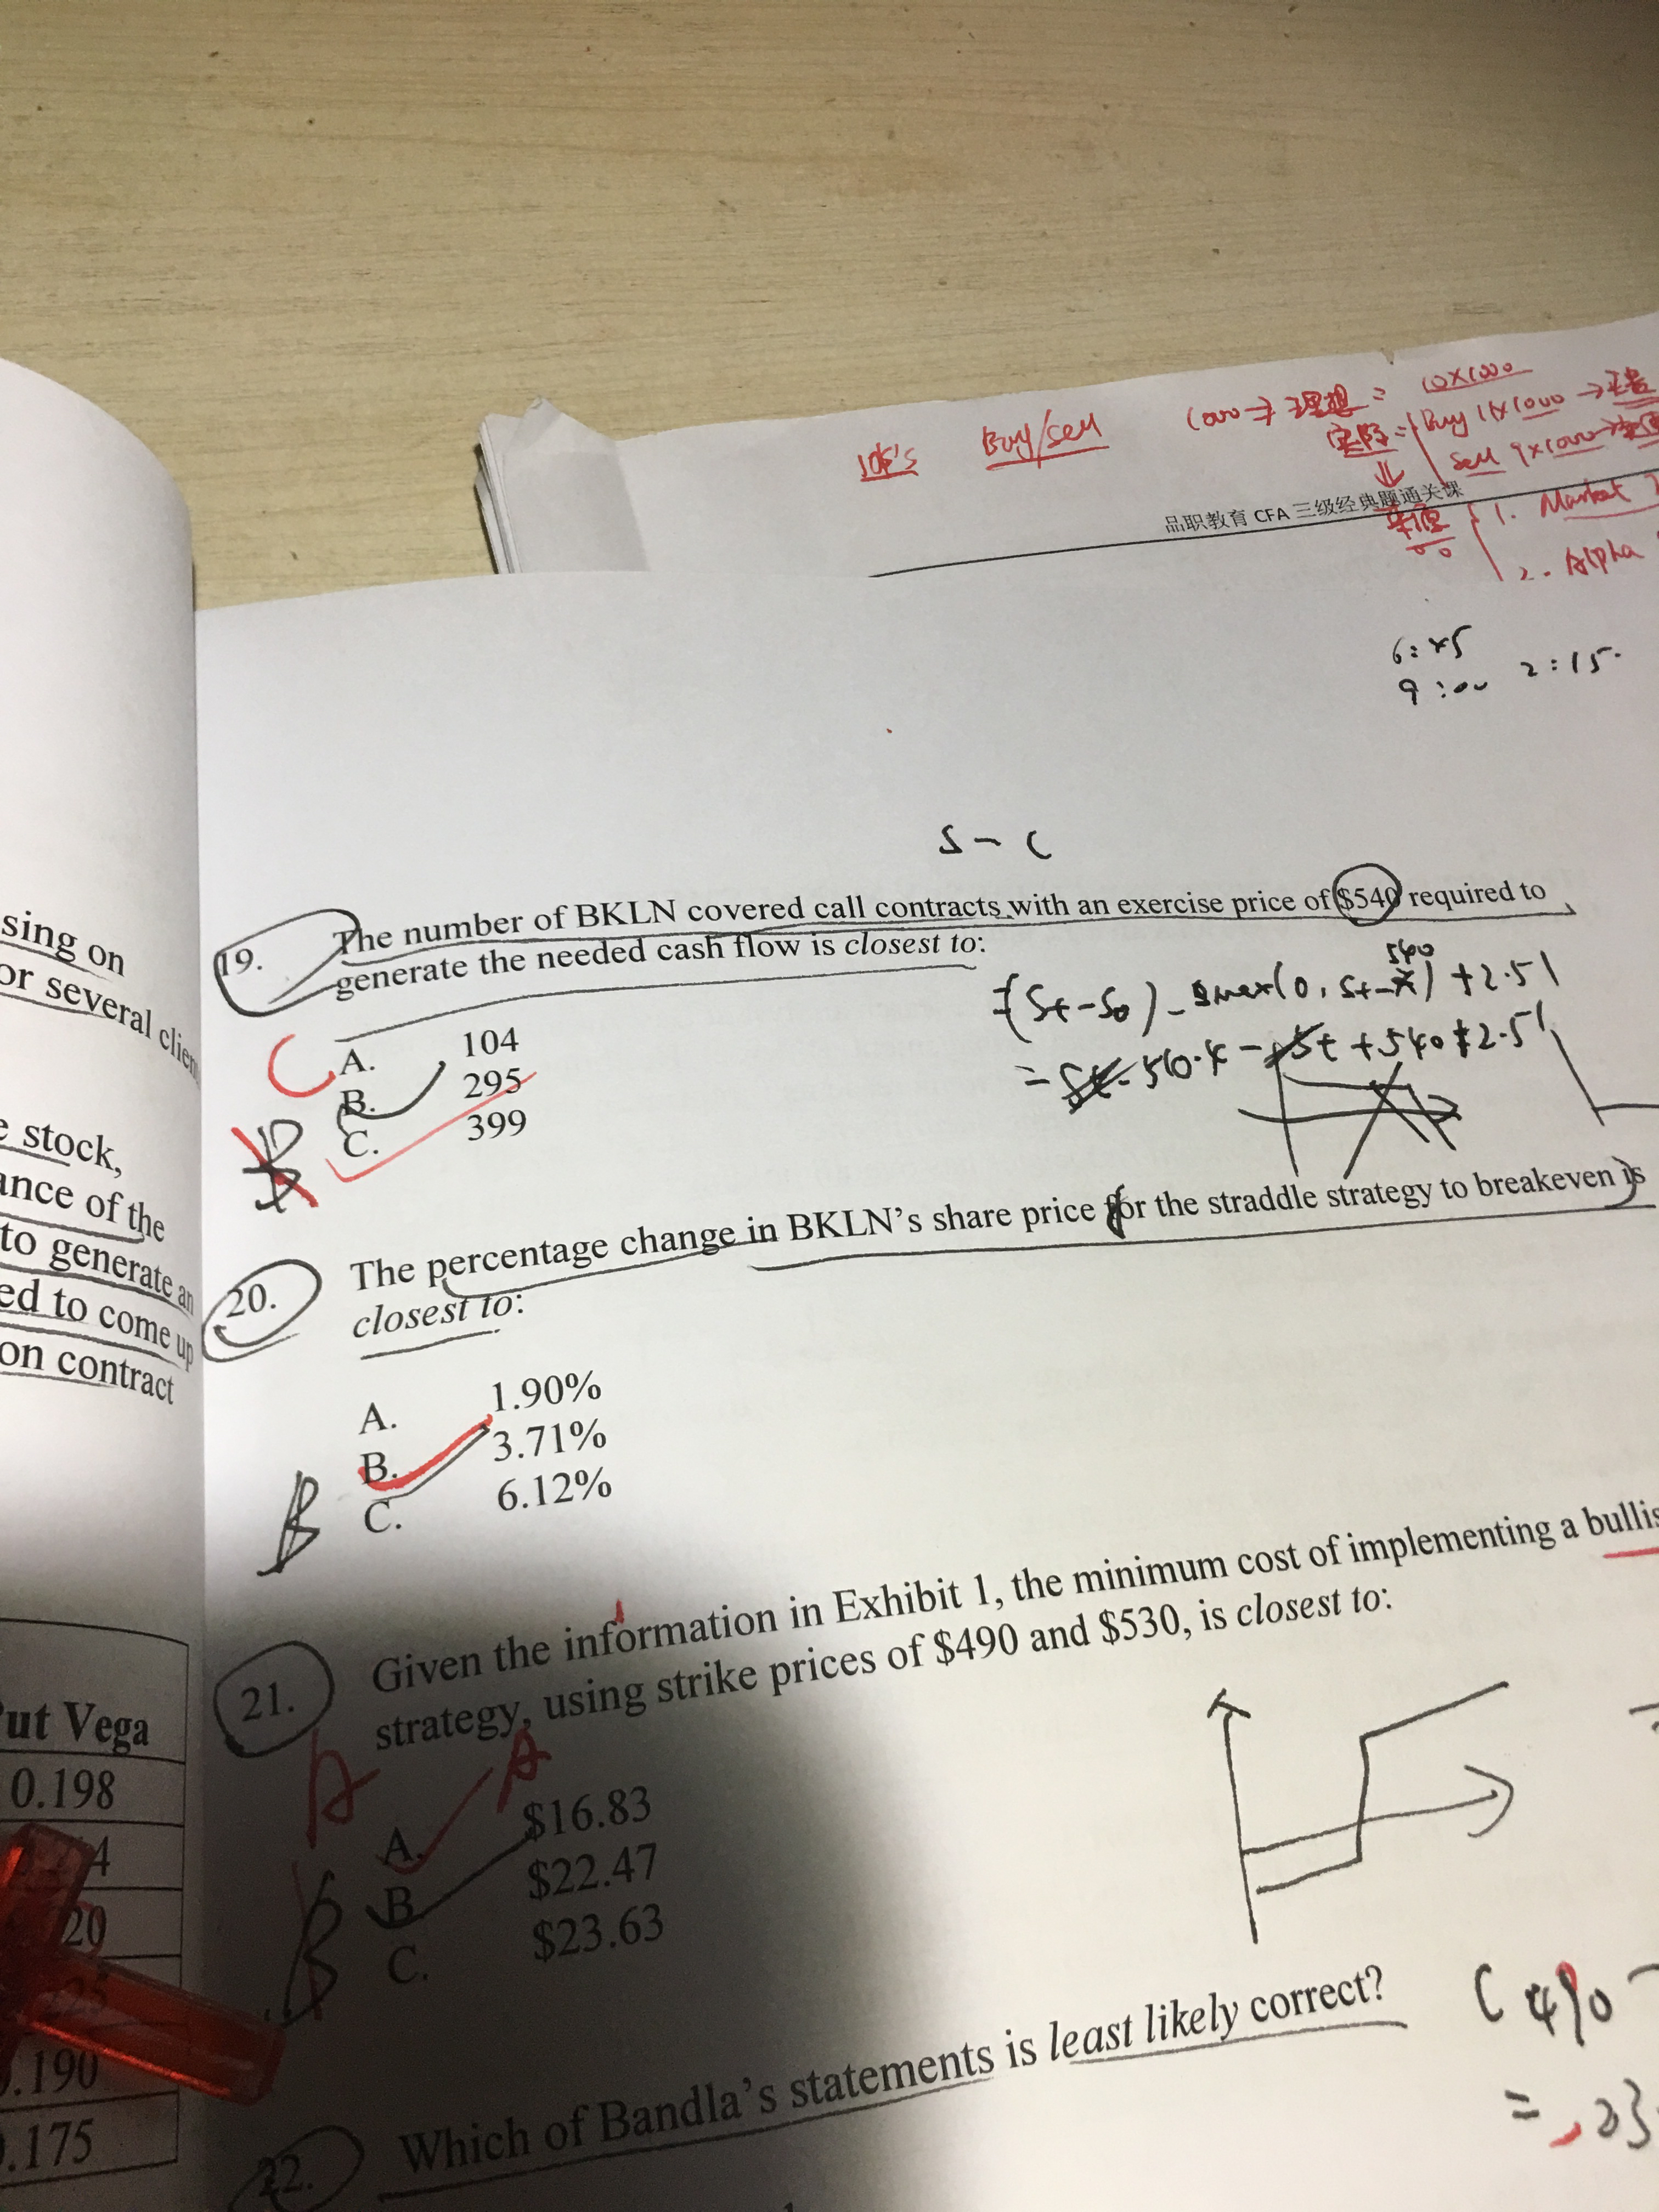 10k's Buy/sell 1000 = 10X1000
Buy 11X1000 →
Sell 9X1000 →
品职教育 CFA 三级经典题通关课
1. Market
2. Alpha
6:45
9:00 2:15.
S - C
19. The number of BKLN covered call contracts with an exercise price of $540 required to
generate the needed cash flow is closest to:
540
=(St-S0)-max(0, St-X)+2.51
= St - 510.4 - St + 540 + 2.51
C A. 104
B. 295
B C. 399
20. The percentage change in BKLN's share price for the straddle strategy to breakeven is
closest to:
A. 1.90%
B. 3.71%
B C. 6.12%
21. Given the information in Exhibit 1, the minimum cost of implementing a bullis
strategy, using strike prices of $490 and $530, is closest to:
A A
A. $16.83
B. $22.47
B C. $23.63
22. Which of Bandla's statements is least likely correct?
C 490 -
sing on
or several clien
e stock,
ance of the
to generate an
ed to come up
on contract
ut Vega
0.198
4
20
225
.190
.175